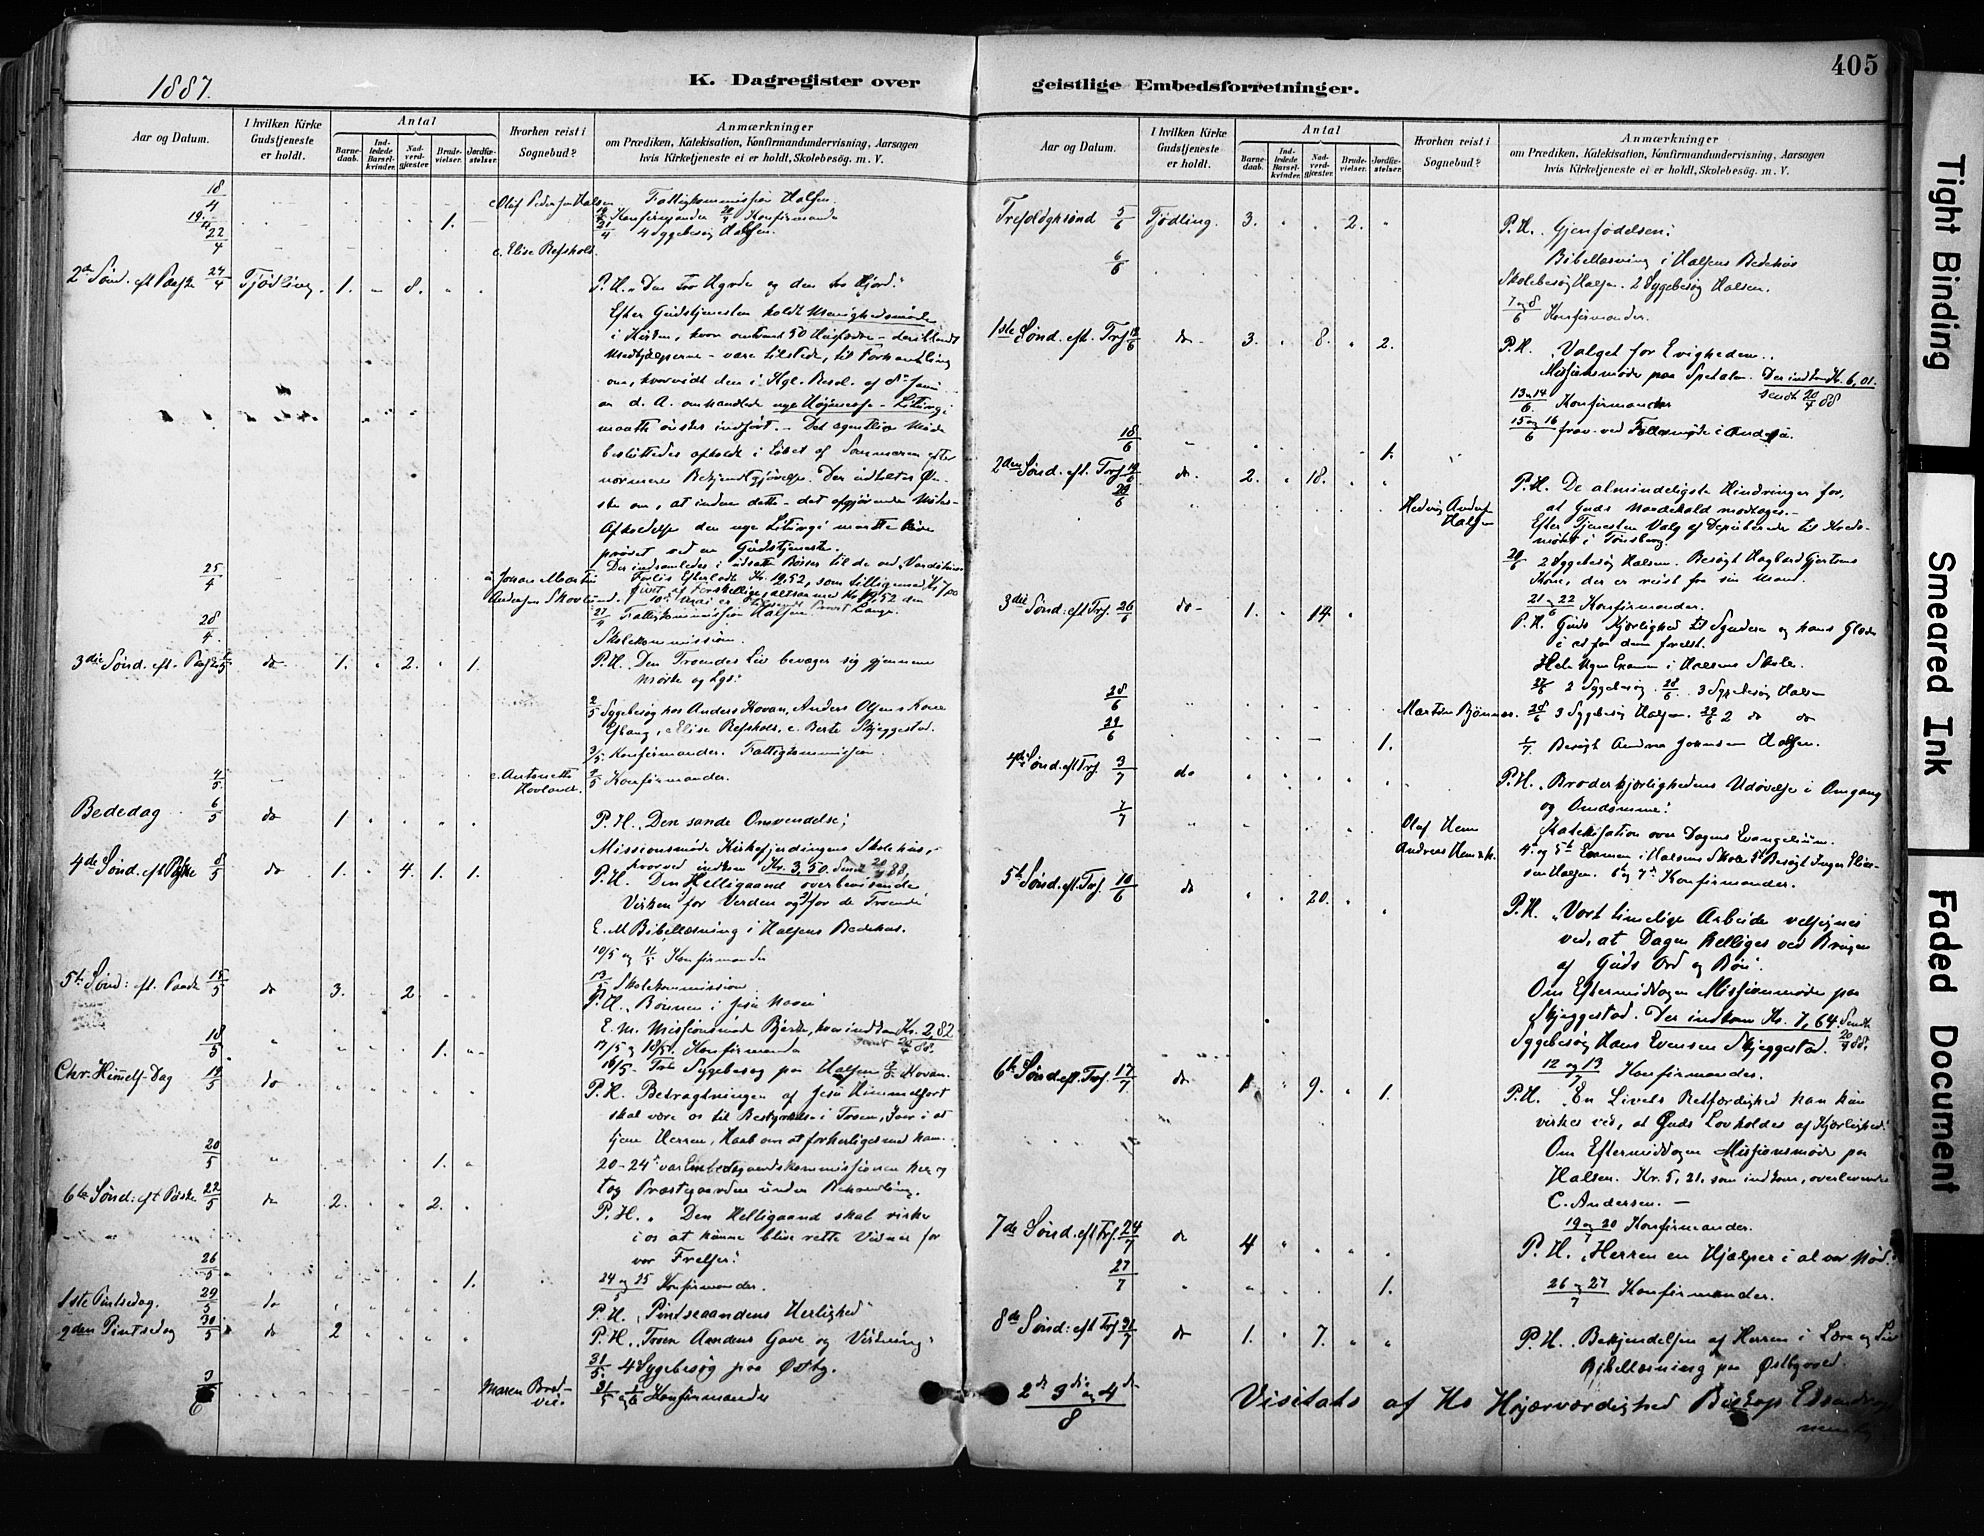 1887.
K. Dagregister over
Aar og Datum.
I hvilken Kirke Gudstjeneste er holdt.
Antal
Barnedaab.
Indledede Barselkvinder.
Nadverdgjæster.
Brudevielser.
Jordfæstelser.
Hvorhen reist i Sognebud?
Anmærkninger
om Prædiken, Katekisation, Konfirmandundervisning, Aarsagen
hvis Kirketjeneste ei er holdt, Skolebesøg. m. V.
18/4 Fattigkommission Halsen.
19/4 1. Konfirmander 20/4 Konfirmander
21/4 4 Sygebesøg Halsen.
22/4 Elise Refsholt.
2den Sønd. eft. Paaske 24/4 Fjødling. 1. 8. P.H. "Den tro Hyrde og den tro Hjord."
Efter Gudstjenesten holdt Menighedsmøde
i Kirken, hvor omtrent 50 Husfædre - deriblandt
Medhjælperne - vare tilstede, til Forhandling
om, hvorvidt den i Kgl. Resol. af 8de Janu
ar d. A. omhandlede nye Høimesse-Liturgi
maatte ønskes indført. - Det egentlige Møde
besluttedes afholdt i Løbet af Sommeren efter
nærmere Bekjendtgjørelse. Der udtaltes Øn-
ske om, at inden dette - det afgjørende Møde-
Afholdelse den nye Liturgi maatte blive
prøvet ved en Gudstjeneste.
25/4
27/4 Fattigkommission Halsen
28/4 Skolekommission.
3die Sønd. eft. Paaske 1/5 do 1. 2. 1. P.H. Den Troendes Liv bevæger sig gjennem
Mørke og Lys.
2/5 Sygebesøg hos Anders Hovan, Anders Olsens Kone
Elise Refsholt, c. Berte Skjeggestad.
3/5 Konfirmander. Fattigkommission.
4/5 c. Antonette Hovland. Konfirmander.
Bededag 6/5 do 1 P.H. "Den sande Omvendelse",
Missionsmøde Kirkefjerdingens Skolehus,
hvorved indkom Kr. 3,50. Sendt 20/4 88,
4de Sønd. eft Paaske 8/5 do 1. 4. 1. 1. P.H. Den Helligaand overbevisende
Virken for Verden og for de Troende
E. M Bibellæsning i Halsens Bedehus.
10/5 og 11/5 Konfirmander
13/5 Skolekommission
5te Sønd: eft. Paaske 15/5 do 3. 2 P.H. "Bønnen i Jesu Navn"
E. M. Missionsmøde Bjerke, hvor indkom Kr. 2,82
sendt 20/4 88.
17/5 og 18/5. Konfirmander
18/5 1.
Chr. Himmelf-Dag 19/5 do P.H. Betragtningen af Jesu Himmelfart
skal være os til Bestyrkelse i Troen, Iver i at
tjene Herren, Haab om at forherliges med ham.
20/5 1. 20-24de var Embedsgaardskommissionen her og
tog Præstegaarden under Behandling.
6te Sønd: eft Paaske 22/5 do 2. 2. P.H. " Den Helligaand skal virke
i os at kunne blive rette Vidner for
vor Frelser."
26/5 1. 24 og 25/5 Konfirmander.
1ste Pintsedag. 29/5 do P.H. "Pintseaandens Herlighed"
2den Pintsedag 30/5 do 2 P.H. "Troen Aandens Gave og Virkning"
31/5 4 Sygebesøg paa Østby.
3/6 Maren Bredvei. 31/5 og 1/6 Konfirmander
geistlige Embedsforretninger.
405
Aar og Datum.
I hvilken Kirke Gudstjeneste er holdt.
Antal
Barnedaab.
Indledede Barselkvinder.
Nadverdgjæster.
Brudevielser.
Jordfæstelser.
Hvorhen reist i Sognebud?
Anmærkninger
om Prædiken, Katekisation, Konfirmandundervisning, Aarsagen
hvis Kirketjeneste ei er holdt, Skolebesøg. m. V.
Trefoldighsønd 5/6 Fjødling. 3. 2. P.H. Gjenfødelsen.
6/6 Bibellæsning i Halsens Bedehus
Skolebesøg Halsen. 2 Sygebesøg Halsen.
7 og 8/6 Konfirmander.
1ste Sønd. eft. Tref 12/6 do 3. 8. 2. P.H. "Valget for Evigheden".
Missionsmøde paa Spetalen. Der indkom Kr. 6,01.
sendt 20/4 88
13 og 14/6. Konfirmander
15 og 16/6 frav. ved Fællesmøde i
18/6 1.
2den Sønd. eft. Tref 19/6 do 2. 18. P.H. De almindeligste Hindringer for,
at Guds Naadekald modtages.
20/6 Efter Tjenesten Valg af Deputerede til Kreds-
mødet i Tønsberg.
20/6 2 Sygebesøg Halsen. Besøgt Hagbard Gjertsens
Kone, der er reist fra sin Mand.
21 og 22/6 Konfirmander.
3die Sønd: eft Tref. 26/6 do 1. 14. P.H. Guds Kjærlighed til Syndere og hans Glæde
i at faa dem frelst.
Hele Ugen Examen i Halsens Skole.
27/6 2 Sygebesøg. 28/6. 3 Sygebesøg Halsen
28/6 28/6 3 Sygebesøg Halsen. 29/6 2 do do
29/6 1. 1/7 Besøgt Andrea Johnsen Halsen.
4de Sønd. eft Tref. 3/7 do P.H. "Broderkjærlighedens Udøvelse i Omgang
og Omdømme."
7/7 Olaf Hem Katekisation over Dagens Evangelium.
4de og 5te Examen i Halsens Skole
6te og 7de Konfirmander.
5te Sønd. eft. Tref. 10/6 do 20. P.H. "Vort timelige Arbeide velsignes
ved, at Dagen helliges ved Brugen
af Guds Ord og Bøn".
Om Eftermiddagen Missionsmøde paa
Skjeggestad. Der indkom Kr. 7,64. Sendt
Sygebesøg Hans Evensen Skjeggestad. 20/4 88.
12 og 13/7 Konfirmander.
6te Sønd. eft. Tref. 17/7 do 1 9. 1. P.H. "En Livets Retfærdighed kan kun
virkes ved, at Guds Lov holdes af Kjærlighed."
Om Eftermiddagen Missionsmøde paa
Halsen. Kr. 5,21. som indkom, overleveredes
C. Andersen. -
19 og 20/7 Konfirmander.
7de Sønd. eft Tref. 24/7 do 4 P.H. "Herren en Hjælper i al vor Nød."
27/7 1. 26 og 27/7 Konfirmander.
8de Sønd: eft Tref 31/7 do 1. 7. P.H. "Bekjendelsen af Herren i Lære og Liv
Bibellæsning paa Østbyrød.
2de 3die og 4de/8 Visitats af Hs Høiærværdighed Biskop
Tight Binding
Smeared Ink
Faded Document